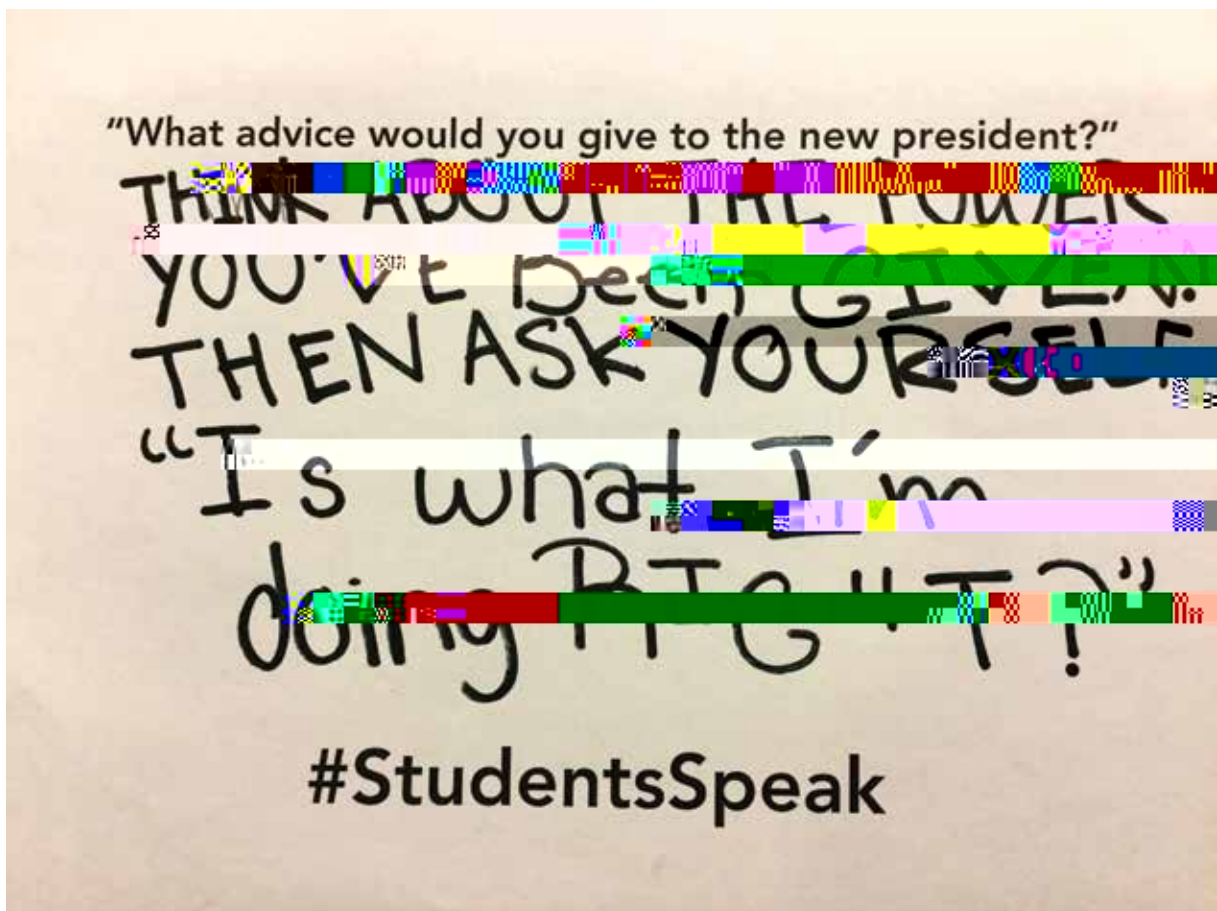 "What advice would you give to the new president?"
THINK ABOUT THE POWER
YOU'VE Been GIVEN.
THEN ASK YOURSELF
"Is what I'm
doing RIGHT?"
#StudentsSpeak